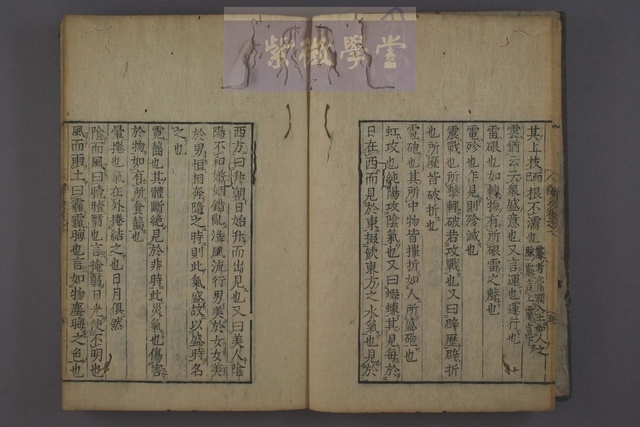 紫微學堂
其上投而根不濡也
雲猶云云衆盛意也又言運也運行也
雷硠也如轉物有所硠雷之聲也
電殄也乍見則殄滅也
震戰也所擊輒破若攻戰也又曰辟歷辟折
也所歷皆破折也
雹砲也其所中物皆摧折如人所盛砲也
虹攻也純陽攻陰氣也又曰蝃蝀其見每於
日在西而見於東掇飲東方之水氣也見於
西方曰升朝日始升而出見也又曰美人陰
陽不和婚姻錯亂淫風流行男美於女女美
於男恒相奔隨之時則此氣盛故以盛時名
之也
霓齧也其體斷絕見於非時此災氣也傷害
於物如有所食齧也
暈捲也氣在外捲結之也日月俱然
陰而風曰曀曀翳也言掩翳日光使不明也
風而雨土曰霾霾晦也言如物塵晦之色也